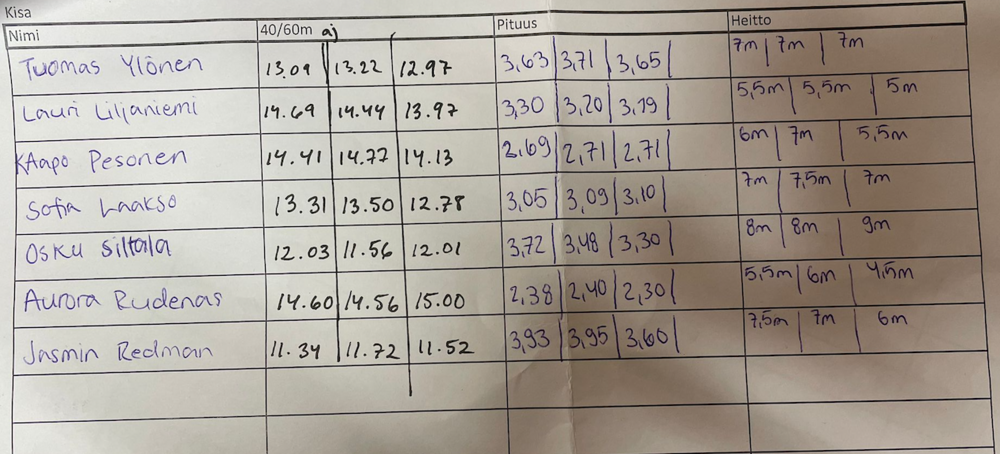 Kisa
Nimi 40/60m aj Pituus Heitto
Tuomas Ylönen 13.09 13.22 12.97 3,63 3,71 3,65 7m 7m 7m
Lauri Liljaniemi 14.69 14.44 13.97 3,30 3,20 3,19 5,5m 5,5m 5m
KAapo Pesonen 14.41 14.77 14.13 2,69 2,71 2,71 6m 7m 5,5m
Sofia Laakso 13.31 13.50 12.78 3,05 3,09 3,10 7m 7,5m 7m
Osku Siltala 12.03 11.56 12.01 3,72 3,48 3,30 8m 8m 9m
Aurora Rudenas 14.60 14.56 15.00 2,38 2,40 2,30 5,5m 6m 4,5m
Jasmin Redman 11.34 11.72 11.52 3,93 3,95 3,60 7,5m 7m 6m